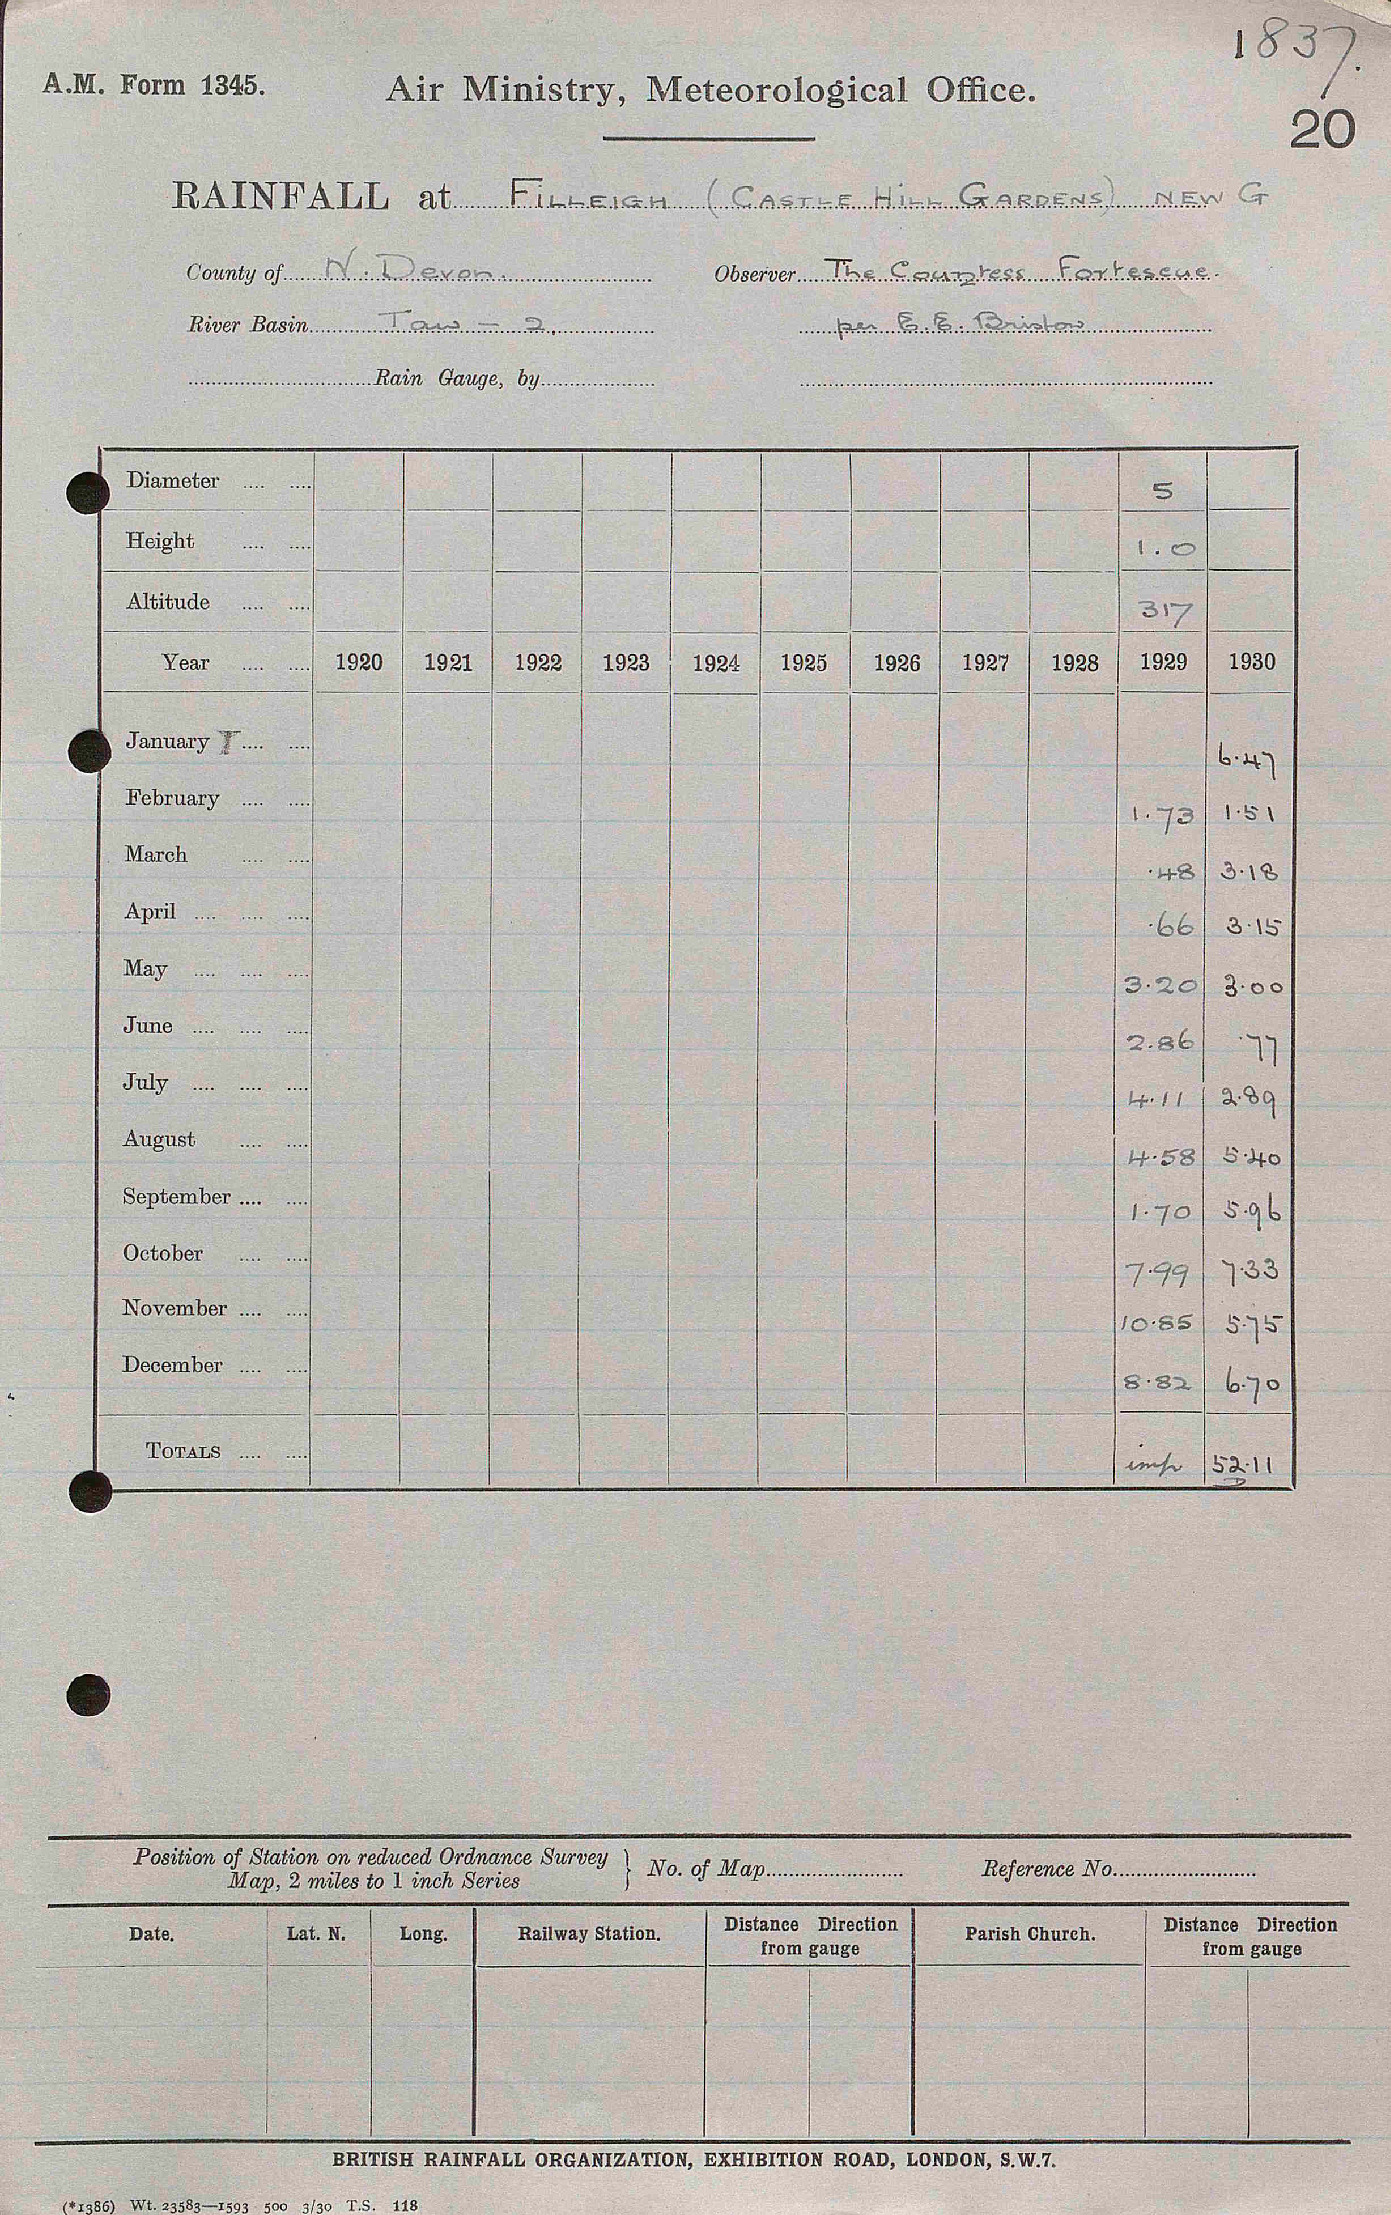 1837.
A.M. Form 1345. Air Ministry, Meteorological Office.
20
RAINFALL at FILLEIGH (CASTLE HILL GARDENS) NEW G
County of N. Devon. Observer The Countess Fortescue.
River Basin Taw - 2. per E.E. Bristow
Rain Gauge, by
Diameter .... .... 5
Height .... .... 1.0
Altitude .... .... 317
Year .... .... 1920 1921 1922 1923 1924 1925 1926 1927 1928 1929 1930
January T .... .... 6.47
February .... .... 1.73 1.51
March .... .... .48 3.18
April .... .... .... .66 3.15
May .... .... .... 3.20 3.00
June .... .... .... 2.86 .77
July .... .... .... 4.11 2.89
August .... .... 4.58 5.40
September .... .... 1.70 5.96
October .... .... 7.99 7.33
November .... .... 10.85 5.75
December .... .... 8.82 6.70
TOTALS .... .... imp 52.11
Position of Station on reduced Ordnance Survey
Map, 2 miles to 1 inch Series } No. of Map Reference No.
Date. Lat. N. Long. Railway Station. Distance Direction from gauge Parish Church. Distance Direction from gauge
BRITISH RAINFALL ORGANIZATION, EXHIBITION ROAD, LONDON, S.W.7.
(*1386) Wt. 23583—1593 500 3/30 T.S. 118